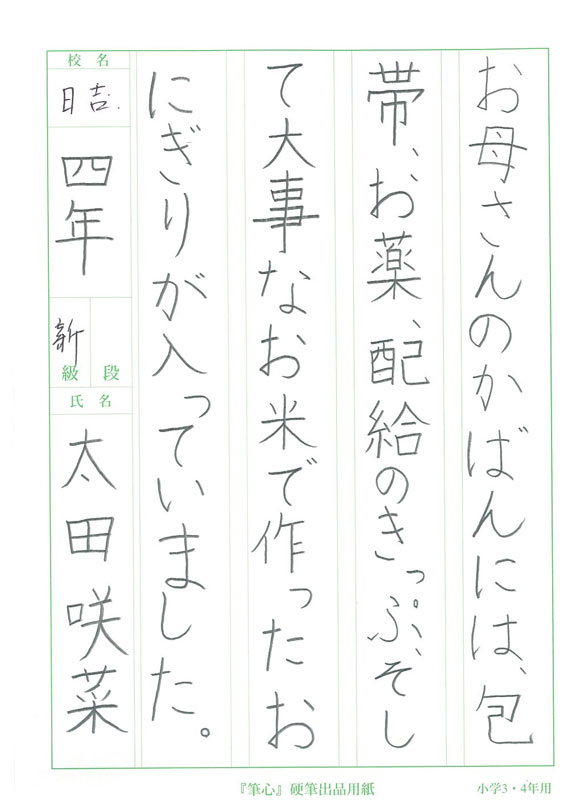 お母さんのかばんには、包
帯、お薬、配給のきっぷ、そし
て大事なお米で作ったお
にぎりが入っていました。
校名
日吉
四年
新
級段
氏名
太田咲菜
『筆心』硬筆出品用紙
小学3・4年用